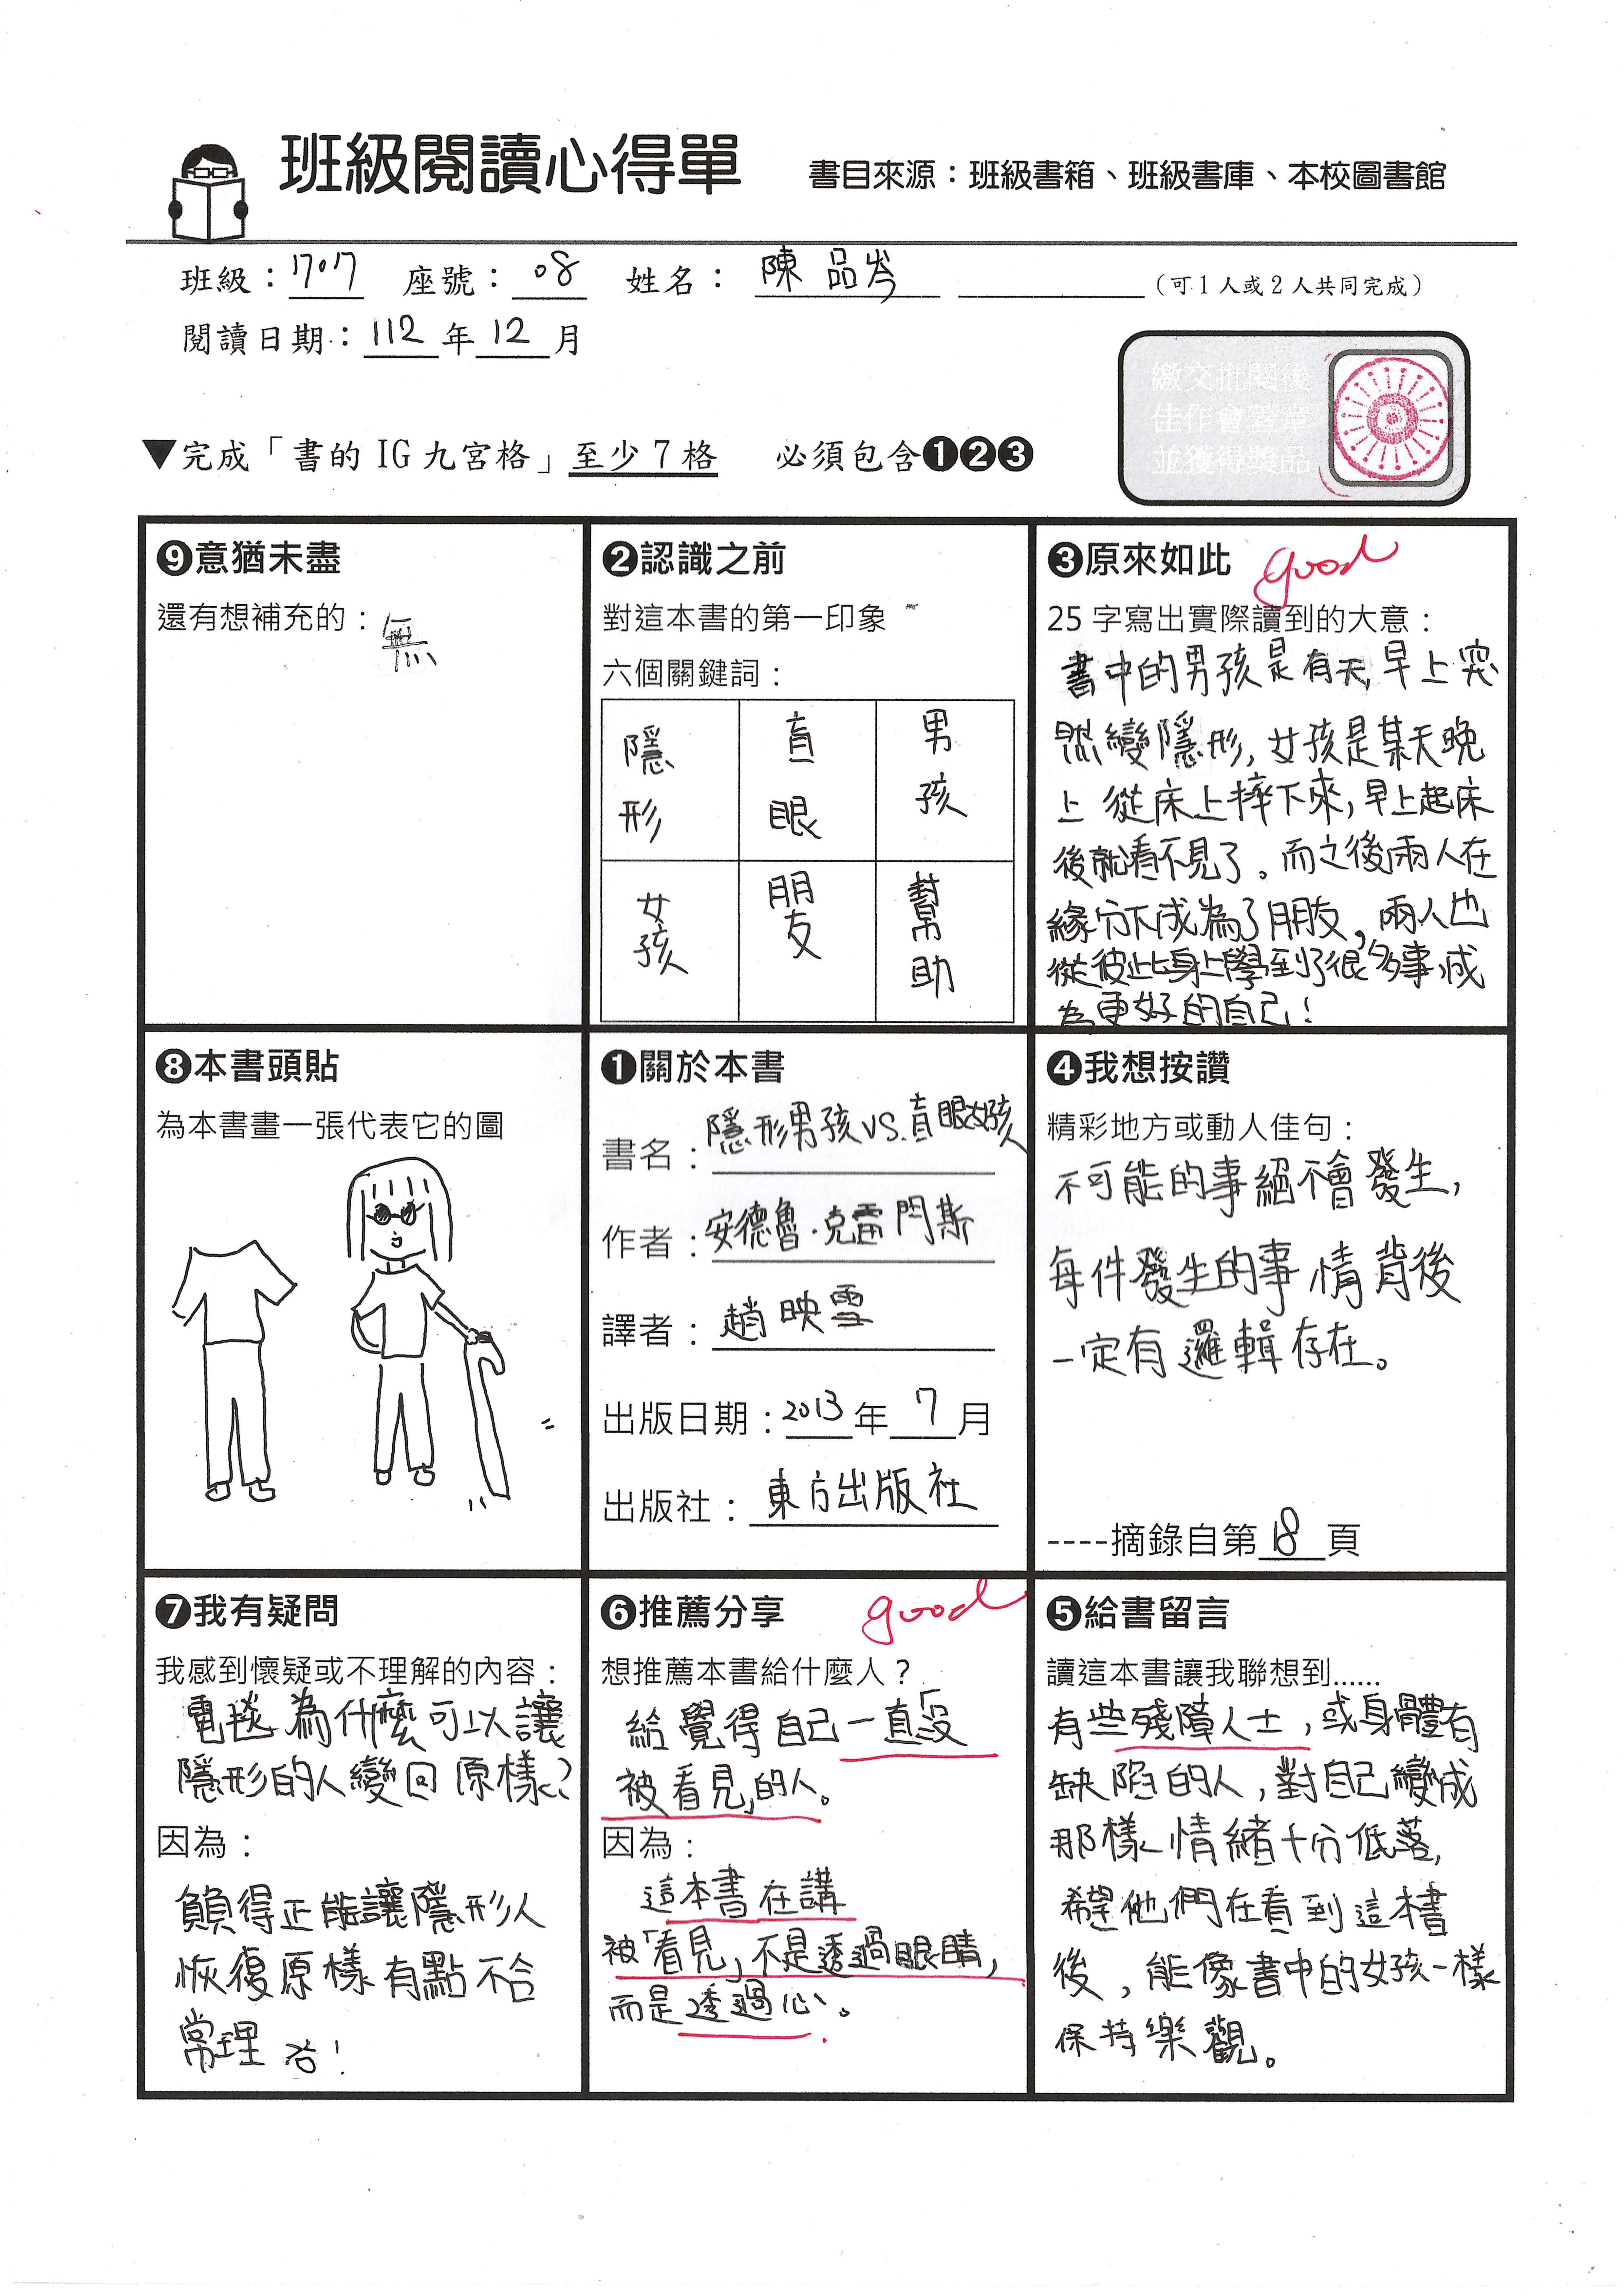 班級閱讀心得單
書目來源：班級書箱、班級書庫、本校圖書館
班級：1707 座號：08 姓名：陳品岑 （可1人或2人共同完成）
閱讀日期：112年12月
繳交批閱後
佳作會蓋章
並獲得獎品
▼完成「書的 IG 九宮格」至少7格 必須包含❶❷❸
❾意猶未盡
還有想補充的：無
❷認識之前
對這本書的第一印象
六個關鍵詞：
隱形 盲眼 男孩
女孩 朋友 幫助
❸原來如此 good
25字寫出實際讀到的大意：
書中的男孩是有天早上突
然變隱形，女孩是某天晚
上從床上摔下來，早上起床
後就看不見了。而之後兩人在
緣分下成為了朋友，兩人也
從彼此身上學到了很多事，成
為更好的自己！
❽本書頭貼
為本書畫一張代表它的圖
❶關於本書
書名：隱形男孩VS.盲眼女孩
作者：安德魯．克雷門斯
譯者：趙映雪
出版日期：2013年7月
出版社：東方出版社
❹我想按讚
精彩地方或動人佳句：
不可能的事絕不會發生，
每件發生的事情背後
一定有邏輯存在。
----摘錄自第18頁
❼我有疑問
我感到懷疑或不理解的內容：
電毯為什麼可以讓
隱形的人變回原樣？
因為：
覺得正能讓隱形人
恢復原樣有點不合
常理！
❻推薦分享 good
想推薦本書給什麼人？
給覺得自己一直「沒
被看見」的人。
因為：
這本書在講
被「看見」不是透過眼睛，
而是透過心。
❺給書留言
讀這本書讓我聯想到......
有些殘障人士，或身體有
缺陷的人，對自己變成
那樣情緒十分低落，
希望他們在看到這本書
後，能像書中的女孩一樣
保持樂觀。